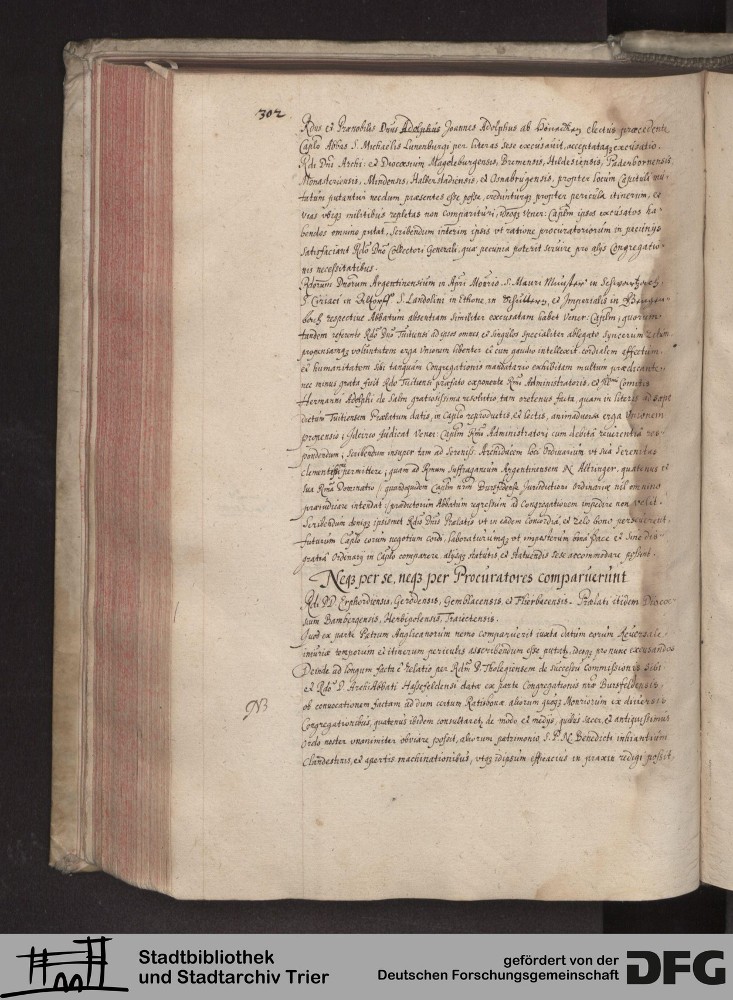 302
Rdus et Prænobilis Dnus Adolphus Joannes Adolphus ab electus præcedente
Caplo Abbas S. Michaelis Lunenburgi per literas sese excusavit, acceptataq; excusatio.
Rdi Dni Archi: et Diocœsium Magdeburgensis, Bremensis, Hildesiensis, Paderbornensis,
Monasteriensis, Mindensis, Halberstadiensis, et Osnabrugensis, propter locum Capituli mu-
tatum putantur necdum præsentes esse posse, credunturq; propter pericula itinerum, et
vias vbiq; militibus repletas non comparituri, Ideoq; Vener: Caplum ipsos excusatos ha-
bendos omnino putat, Scribendum interim ipsis vt ratione procuratoriorum in pecunijs
satisfaciant Rdo Dno Collectori Generali, quæ pecunia poterit servire pro alijs Congregatio-
nis necessitatibus.
Rdorum Dnorum Argentinensium in Mauri Münster in
S. Ciriaci in S. Landolini in Ethone, in Schuttern, et Imperialis in
bach respectivè Abbatum absentiam similiter excusatam habet Vener: Caplum, quorum
tandem referente Rdo Dno Tuitiensi ad ipsos omnes et singulos specialiter ablegato syncerum zelum
propensamq; voluntatem erga Vnionem libenter et cum gaudio intellexit, cordialem affectum
et humanitatem sibi tanquam Congregationis mandatario exhibitam multum prædicante,
nec minus grata fuit Rdo Tuitiensi præfato exponente Rmi Administratoris, et Comitis
Hermanni Adolphi de Salm gratiosissima resolutio tam oretenus facta, quam in literis ad sæpe
dictum Tuitiensem Prælatum datis, in Caplo reproductis, et lectis, animadversa erga Vnionem
propensio; Idcirco iudicat Vener: Caplum Rmo Administratori cum debita reverentia res-
pondendum, Scribendum insuper tam ad Sereniss. Archiducem loci Ordinarium vt sua Serenitas
clementissime permittere, quam ad Rmum Suffraganeum Argentinensem N. Altringer, quatenus et
sua Rma Dominatio /: quandoquidem Caplum nrum Bursfeldense Jurisdictioni Ordinariæ nil omnino
præiudicare intendat :/ prædictorum Abbatum regressum ad Congregationem impedire non velit.
Scribendum deniq; ipsismet Rdis Dnis Prælatis vt in eadem concordia, et zelo bono perseverent,
futurum Caplo eorum negotium cordi, laboraturumq; vt impostorum bona pace et sine dis-
gratia Ordinarij in Caplo comparere, alijsq; statutis et statuendis sese accommodare possint.
Neq; per se, neq; per Procuratores comparuerunt
Rdi PD. Erphordiensis, Gerodensis, Gemblacensis, et Prælati itidem Diœce-
sium Bambergensis, Herbipolensis, Traiectensis.
Quod ex parte Patrum Anglicanorum nemo comparuerit iuxta datum eorum Reversale
iniuriæ temporum et itinerum periculis asscribendum esse putat, Ideoq; pro nunc excusandos
Deinde ad longum facta e relatio per Rdm P. Tholegiensem de successu commissionis sibi
et Rdo D. ArchiAbbati Hassefeldensi datæ ex parte Congregationis nræ Bursfeldensis,
NB
ob convocationem factam ad diem certum Ratisbonæ aliorum quoq; Monriorum ex diversis
Congregationibus, quatenus ibidem consultaret, de modo, et medijs, quibus sacer, et antiquissimus
Ordo noster vnanimiter obviare possit, aliorum patrimonio S. P. N. Benedicti inhiantium
Clandestinis, et apertis machinationibus, vtq; idipsum efficacius in praxin redigi possit,
Stadtbibliothek
und Stadtarchiv Trier
gefördert von der
Deutschen Forschungsgemeinschaft
DFG